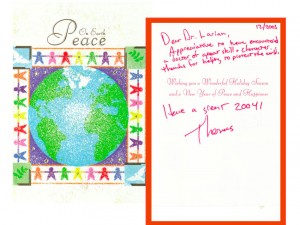 On Earth
Peace
12/2003
Dear Dr. Larian,
Appreciative to have encountered
a doctor of great skill & character.
Thanks for helping to protect the world.
Wishing you a Wonderful Holiday Season
and a New Year of Peace and Happiness
Have a great 2004!
Thomas